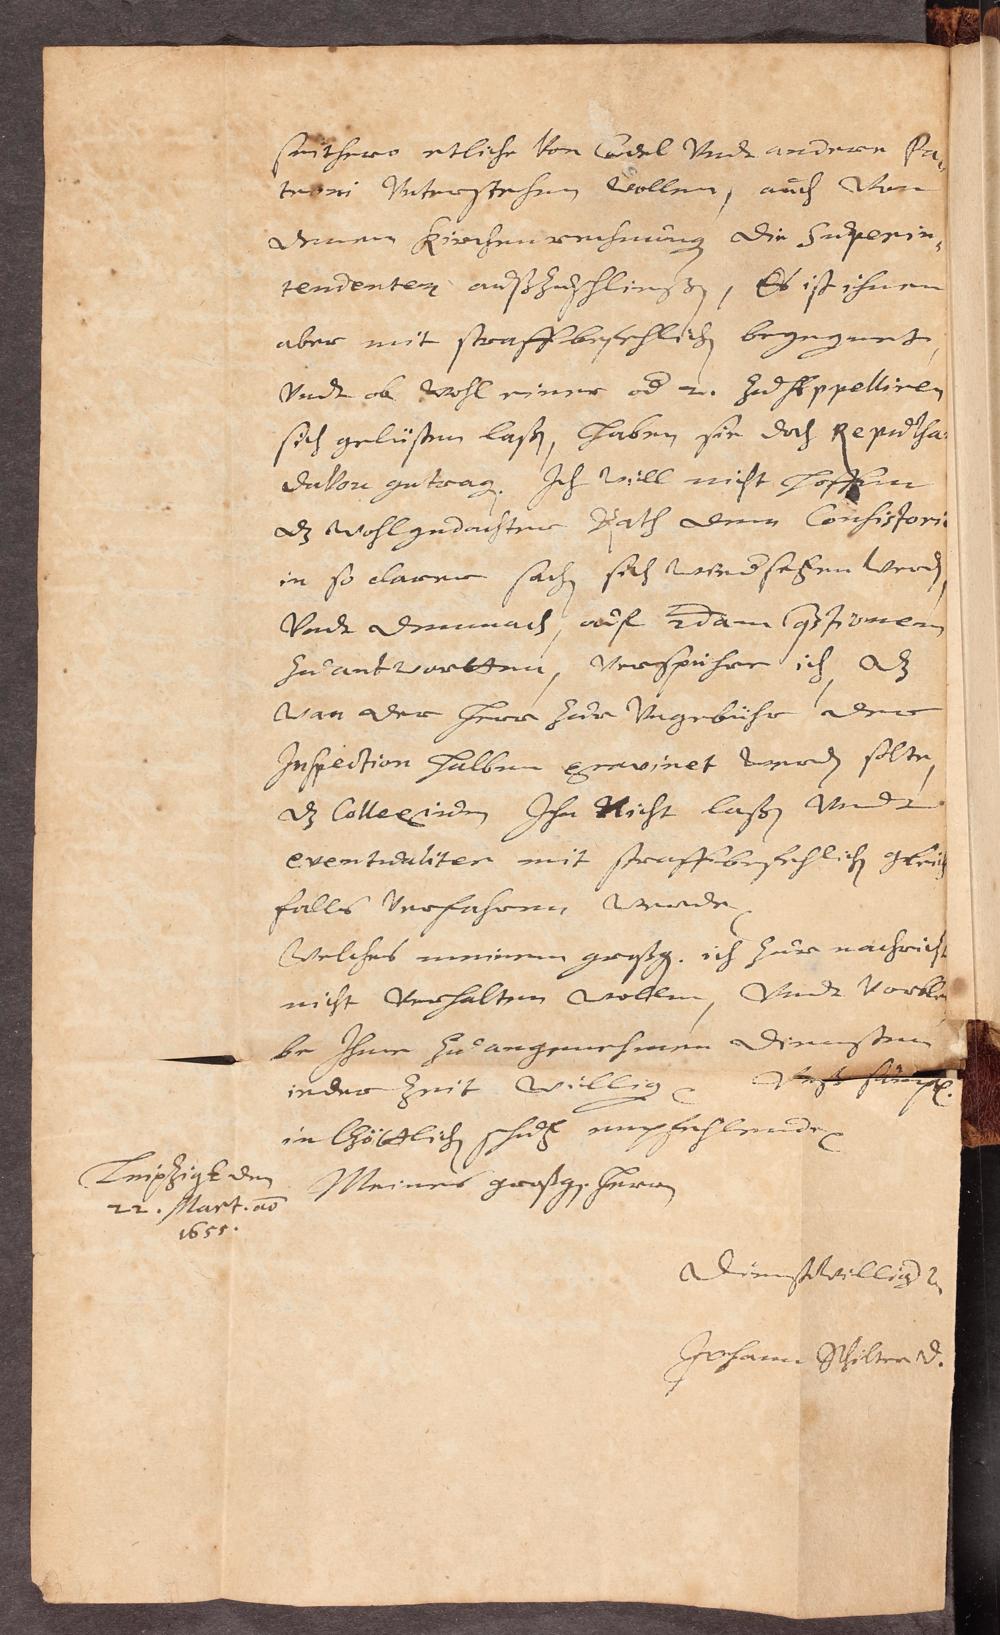 seithero etliche Von Adel Vndt andere Pa-
troni Vnterstehen wollen, auch Von
denen Kirchenrechnung die Superin-
tendenten außzuschließen, Es ist ihnen
aber mit straffbefehlich begegnet,
Vndt ob wohl einer od 2. zu Appelliren
sich gelüsten laßen, haben sie doch Repulsa
davon getragen. Ich will nicht hoffen
dz wohlgedachter Rath dem Consistorio
in so clarer sach sich wiedersetzen werd,
Vndt demnach, auf 2dam qstionem
zu antwortten, Verspühre ich, dz
wan der Herr zur Vngebühr der
Inspection halben graviret werden solte,
dz Collegium Ihn Nicht laßen Vndt
eventualiter mit straffbefehlich gleich
falls Verfahren werde.
Welches meinem großg. ich zur nachricht
nicht Verhalten wollen, Vndt Verblei
be Ihme zu angenehmen Diensten
ieder Zeit willig
in Göttlich schutz empfehlende
Meines großg. Herrn
Leipzigk den
22. Mart. ao
1655.
Dienstwilliger
Johann Schilter D.